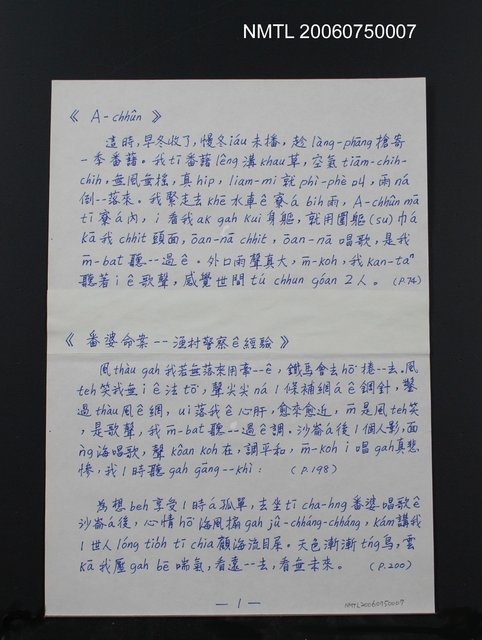 NMTL 20060750007
《 A-chhûn 》
這時,早冬收了,慢冬iáu未播,趁làng-phāng搶寄
一季番藷。我tī番藷lêng溝khau草,空氣tiām-chih-
chih,無風無搖,真hip,liam-mi就phì-phè叫,雨ná
倒--落來。我緊走去khē水車ê寮á bih雨,A-chhûn mā
tī寮á內,i看我ak gah kui身軀,就用圍軀(su)巾á
kā我chhit頭面,ōan-nā chhit,ōan-nā唱歌,是我
m̄-bat聽--過ê。外口雨聲真大,m̄-koh,我kan-taⁿ
聽著i ê歌聲,感覺世間tú chhun góan 2人。 (P.74)
《 番婆命案 -- 漁村警察ê經驗 》
風thàu gah我若無落來用牽--ê,鐵馬會去hō͘捲--去。風
teh笑我無i ê法tō͘,聲尖尖ná 1條補網á ê鋼針,鑿
過thàu風ê網,ui落我ê心肝,愈來愈近,m̄是風teh笑
,是歌聲,我m̄-bat聽--過ê調。沙崙á後1個人影,面
ǹg海唱歌,聲kôan koh在,調平和,m̄-koh i唱gah真悲
慘,我1時聽gah gāng--khì: (P.198)
為想beh享受1時á孤單,去坐tī cha-hng番婆唱歌ê
沙崙á後,心情hō͘海風搧gah jû-chháng-chháng,kám講我
1世人lóng tio̍h tī chia顧海流目屎。天色漸漸tńg烏,雲
kā我壓gah bē喘氣,看遠--去,看無未來。 (P.200)
— 1 —
NMTL20060750007